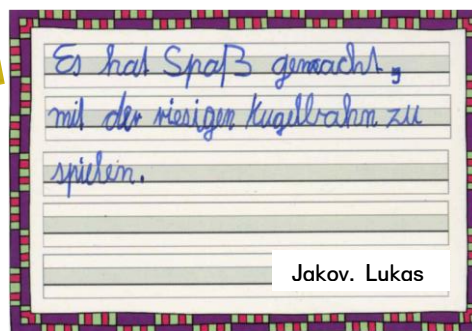 Es hat Spaß gemacht,
mit der riesigen Kugelbahn zu
spielen.
Jakov. Lukas